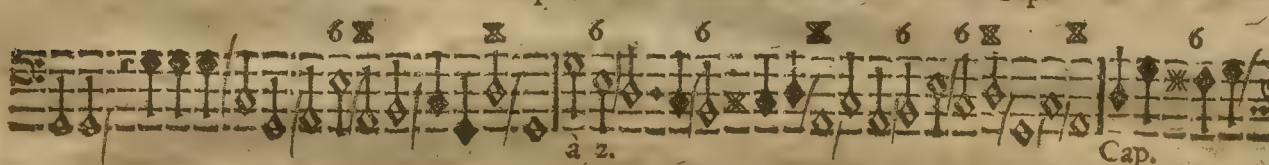 6 6 6 6 6 6
à 2. Cap.